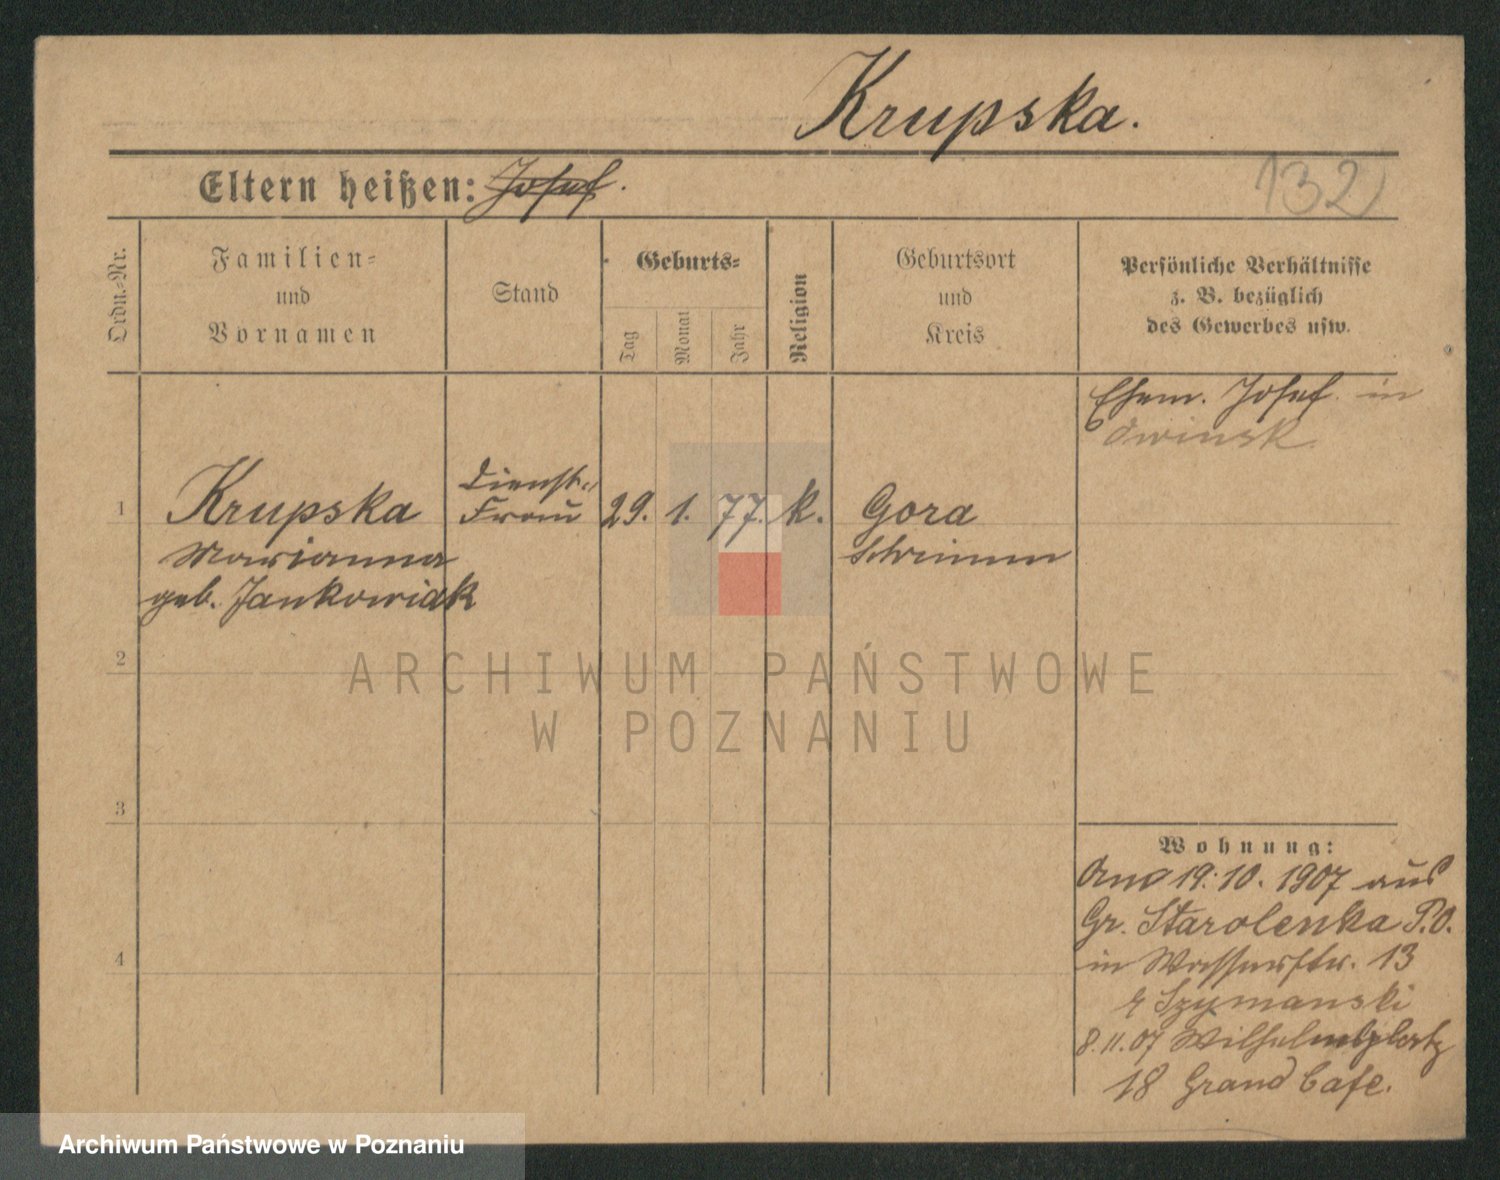 Krupska.
Eltern heißen: Josef.
132
Ordn.-Nr.
Familien-
und
Vornamen
Stand
Geburts-
Tag
Monat
Jahr
Religion
Geburtsort
und
Kreis
Persönliche Verhältnisse
z. B. bezüglich
des Gewerbes usw.
Ehem. Josef in
Owinsk.
1 Krupska Dienst- Frau 29. 1. 77. k. Gora
Marianna Schrimm
geb. Jankowiak
2
ARCHIWUM PAŃSTWOWE
W POZNANIU
3
Wohnung:
19.10. 1907 aus
Gr. Starolenka P.O.
4 in Wasserstr. 13
Szymanski
8.11.07 Wilhelmsplatz
18 Grand Cafe.
Archiwum Państwowe w Poznaniu